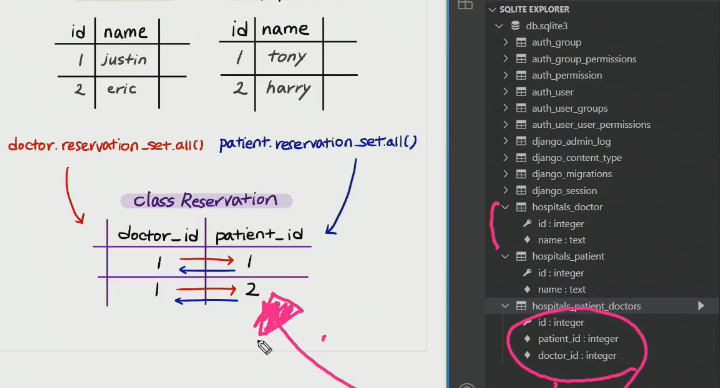 id name
1 justin
2 eric
id name
1 tony
2 harry
doctor.reservation_set.all()
patient.reservation_set.all()
class Reservation
doctor_id patient_id
1 1
1 2
SQLITE EXPLORER
db.sqlite3
auth_group
auth_group_permissions
auth_permission
auth_user
auth_user_groups
auth_user_user_permissions
django_admin_log
django_content_type
django_migrations
django_session
hospitals_doctor
id : integer
name : text
hospitals_patient
id : integer
name : text
hospitals_patient_doctors
id : integer
patient_id : integer
doctor_id : integer